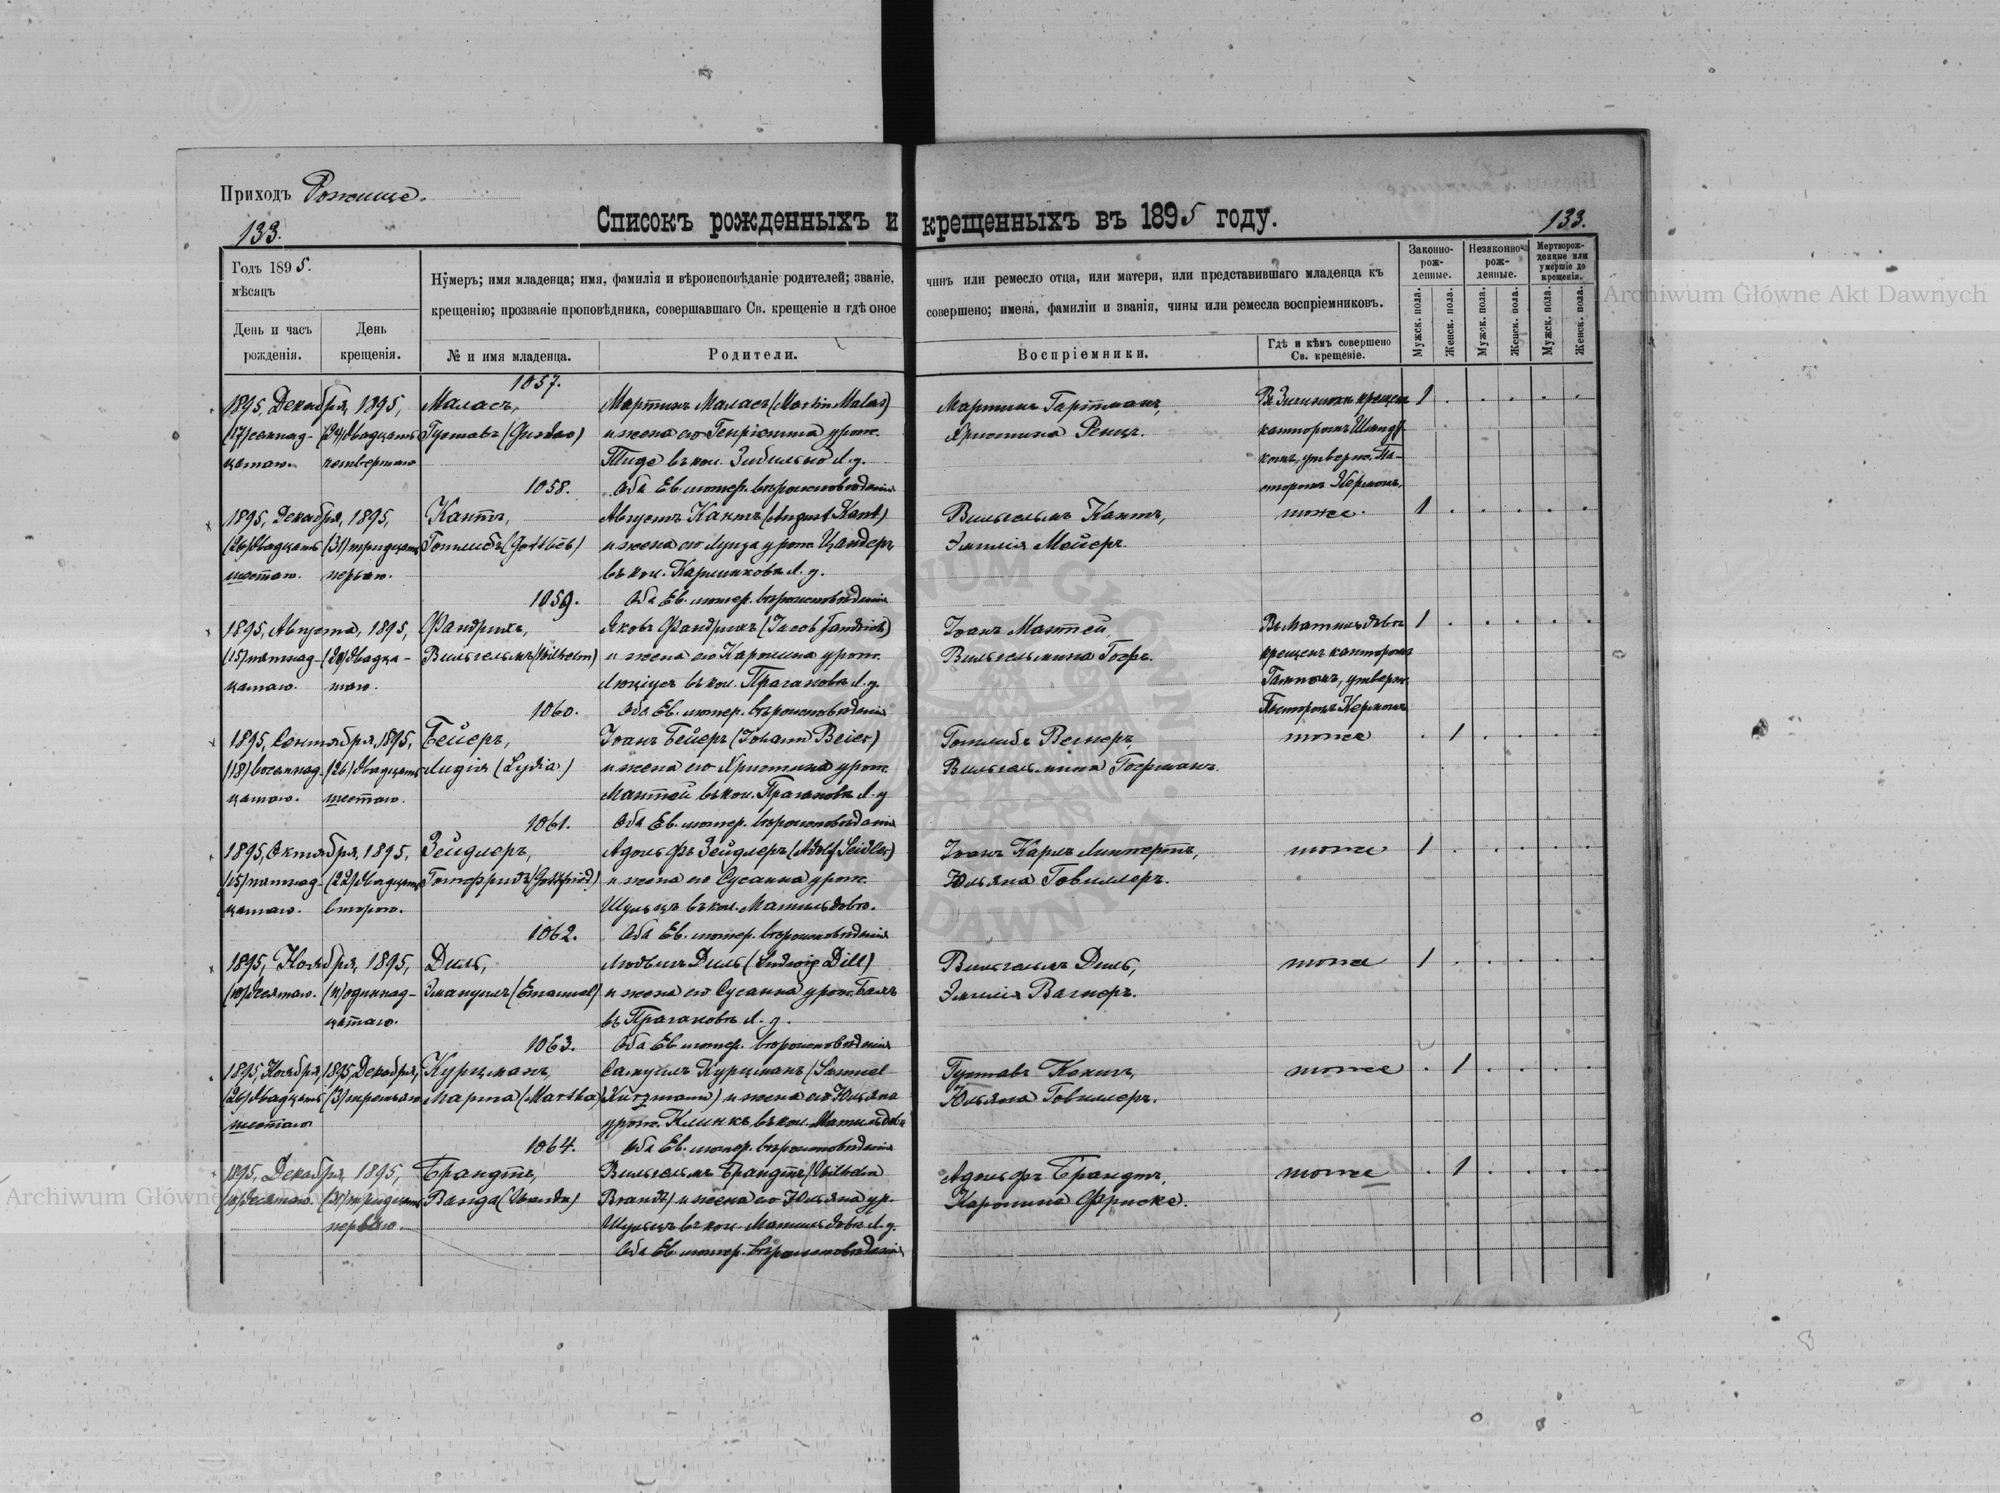 Приходъ Рожище.
133.
Списокъ рожденныхъ и крещенныхъ въ 1895 году.
133.
Годъ 1895.
мѣсяцъ
День и часъ рожденія.
День крещенія.
Нумеръ; имя младенца; имя, фамилія и вѣроисповѣданіе родителей; званіе, чинъ или ремесло отца, или матери, или представившаго младенца къ
крещенію; прозваніе проповѣдника, совершавшаго Св. крещеніе и гдѣ оное совершено; имена, фамиліи и званія, чины или ремесла воспріемниковъ.
№ и имя младенца.
Родители.
Воспріемники.
Гдѣ и кѣмъ совершено Св. крещеніе.
Законно-рож-денные.
Незаконно-рож-денные.
Мертворож-денные или умершіе до крещенія.
Мужск. пола.
Женск. пола.
Мужск. пола.
Женск. пола.
Мужск. пола.
Женск. пола.
1057.
1895, Декабря, 1895, Маласъ, Мартинъ Маласъ (Martin Malas) Мартинъ Гартманъ, 1
(17) семнад- (24) двадцать Густавъ (Gustav) и жена его Генріетта урож. Христина Ренцъ. канторомъ
цатаго. четвертаго Тиде въ кол. л. у.
1058. Оба Ев. лютер. вѣроисповѣданія
1895, Декабря, 1895, Кантъ, Августъ Кантъ (August Kant) Вильгельмъ Кантъ, тоже. 1
(26) двадцать (31) тридцать Готлибъ (Gottlieb) и жена его Луиза урож. Цандеръ Эмилія Мейеръ.
шестаго. перваго. въ кол. л. у.
1059. Оба Ев. лютер. вѣроисповѣданія
1895, Августа, 1895, Фандрихъ, Яковъ Фандрихъ (Jacob Fandrich) Іоанъ Маттей, 1
(15) пятнад- (20) двадца- Вильгельмъ (Wilhelm) и жена его Каролина урож. Вильгельмина крещенъ канторомъ
цатаго. таго. въ кол. л. у.
1060. Оба Ев. лютер. вѣроисповѣданія Пасторомъ
1895, Сентября, 1895, Бейеръ, Іоанъ Бейеръ (Johann Beier) Готлибъ Вегнеръ, тоже 1
(18) восемнад- (26) двадцать Лидія (Lydia) и жена его Христина урож. Вильгельмина Гофманъ.
цатаго. шестаго. Маттей въ кол. л. у.
1061. Оба Ев. лютер. вѣроисповѣданія
1895, Октября, 1895, Зейдлеръ, Адольфъ Зейдлеръ (Adolf Seidler) Іоанъ Карлъ Липпертъ, тоже 1
(15) пятнад- (22) двадцать Готфридъ (Gottfried) и жена его Сусанна урож. Юльяна Говиллеръ.
цатаго. второго. Шульцъ въ кол. Матильдовъ.
1062. Оба Ев. лютер. вѣроисповѣданія
1895, Ноября, 1895, Диль, Людвигъ Диль (Ludwig Dill) Вильгельмъ Диль, тоже 1
(10) десятаго. (11) одиннад- Эмануилъ (Emanuel) и жена его Сусанна урож. Эмилія Вагнеръ.
цатаго. въ л. у.
1063. Оба Ев. лютер. вѣроисповѣданія
1895, Ноября, 1895, Декабря, Курцманъ, Самуилъ Курцманъ (Samuel Густавъ тоже 1
(26) двадцать (3) третьяго Марта (Martha) Kurzmann) и жена его Юльяна Юльяна Говиллеръ.
шестаго урож. Клинкъ въ кол.
1064. Оба Ев. лютер. вѣроисповѣданія
1895, Декабря, 1895, Брандтъ, Вильгельмъ Брандтъ (Wilhelm Адольфъ Брандтъ, тоже 1
(10) десятаго. (31) тридцать Ванда (Wanda) Brandt) и жена его Юльяна ур. Каролина Фриске.
перваго. Шульцъ въ кол. л. у.
Оба Ев. лютер. вѣроисповѣданія
Archiwum Główne Akt Dawnych
Archiwum Główne Akt Dawnych